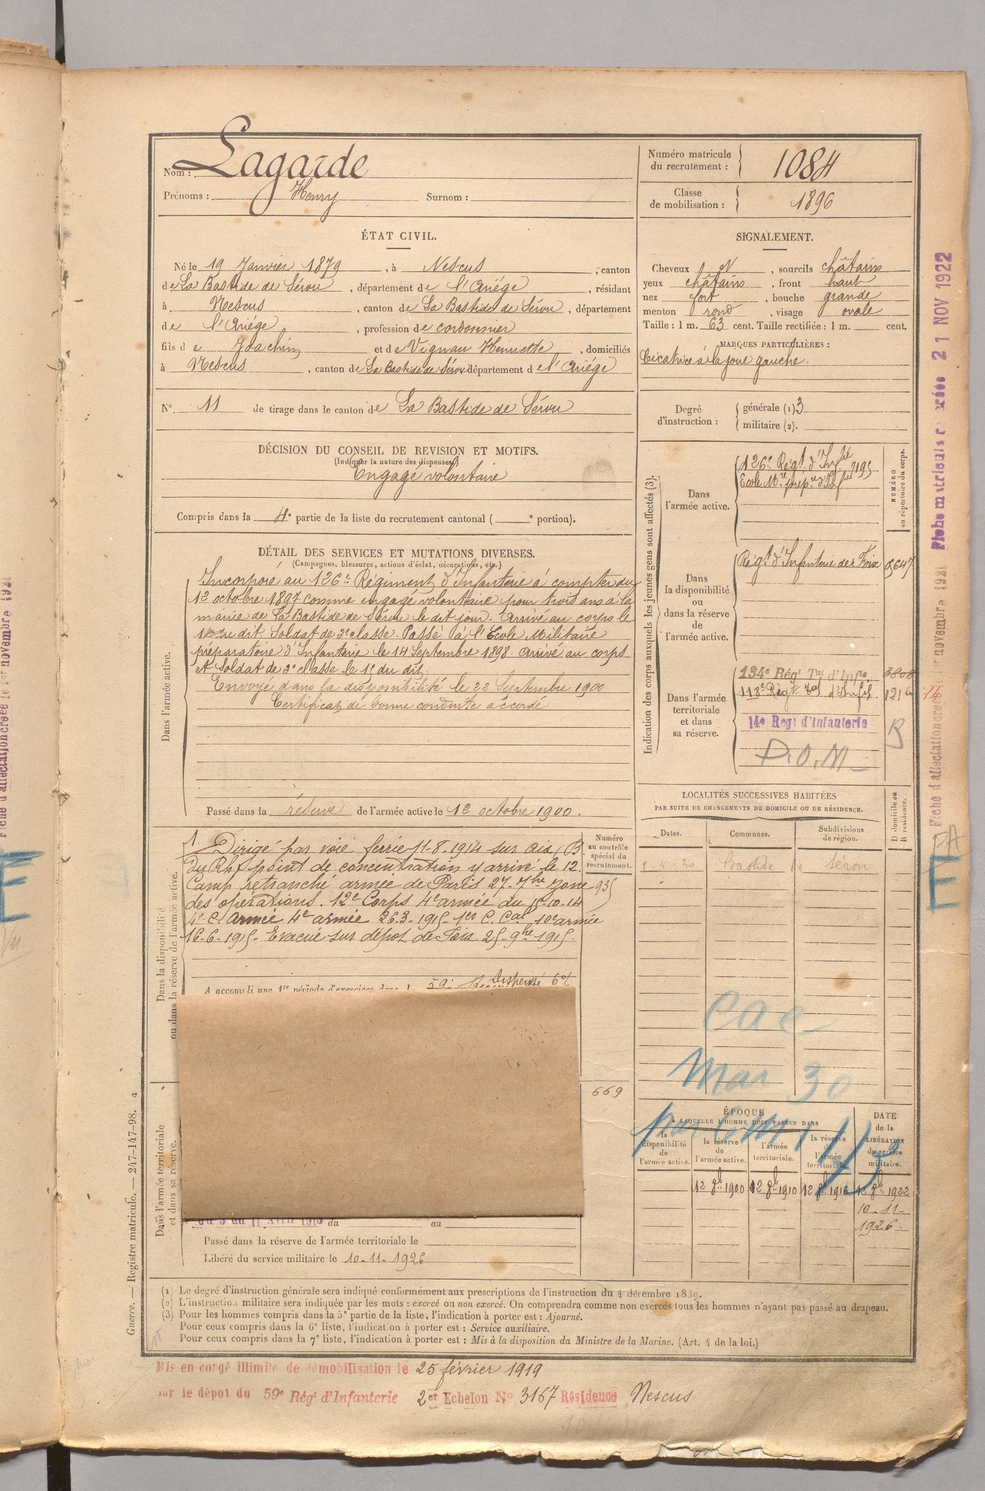 Nom : Lagarde
Prénoms : Henry Surnom :
Numéro matricule du recrutement : 1084
Classe de mobilisation : 1896
ÉTAT CIVIL.
Né le 19 Janvier 1879, à Nescus, canton
de La Bastide de Sérou, département de l'Ariége, résidant
à Nescus, canton de La Bastide de Sérou, département
de l'Ariége, profession de cordonnier
fils de Joachim et de Vignau Henriette, domiciliés
à Nescus, canton de La Bastide de Sérou département de l'Ariége
N° 11 de tirage dans le canton de La Bastide de Sérou
SIGNALEMENT.
Cheveux N, sourcils châtains
yeux châtains, front haut
nez fort, bouche grande
menton rond, visage ovale
Taille : 1 m. 63 cent. Taille rectifiée : 1 m. cent.
MARQUES PARTICULIÈRES :
Cicatrice à la joue gauche.
Degré d'instruction : générale (1) 3
militaire (2).
DÉCISION DU CONSEIL DE REVISION ET MOTIFS.
(Indiquer la nature des dispenses)
Engagé volontaire
Compris dans la 4e partie de la liste du recrutement cantonal ( e portion).
DÉTAIL DES SERVICES ET MUTATIONS DIVERSES.
(Campagnes, blessures, actions d'éclat, décorations, etc.)
Dans l'armée active.
Incorporé au 126e Régiment d'Infanterie à compter du
12 octobre 1897 comme engagé volontaire pour trois ans à la
mairie de La Bastide de Sérou le dit jour. Arrivé au corps le
dit. Soldat de 2e classe. Passé à l'Ecole Militaire
préparatoire d'Infanterie le 14 Septembre 1898. Arrivé au corps
et Soldat de 2e classe le 1 du dit.
Envoyé dans la disponibilité le 22 Septembre 1900
Certificat de bonne conduite accordé
Passé dans la réserve de l'armée active le 12 octobre 1900.
Indication des corps auxquels les jeunes gens sont affectés (3).
NUMÉRO au répertoire du corps.
Dans l'armée active.
126e Régt d'Infie 7195
Ecole Mre prépre d'Infie
Dans la disponibilité ou dans la réserve de l'armée active.
Régt d'Infanterie de Foix
Dans l'armée territoriale et dans sa réserve.
134e Régt Tal d'Infie 3808
113e Régt Tal d'Infie
14e Régt d'Infanterie
D.O.M
LOCALITÉS SUCCESSIVES HABITÉES
PAR SUITE DE CHANGEMENTS DE DOMICILE OU DE RÉSIDENCE.
Dates. Communes. Subdivisions de région. D domicile ou R résidence.
Bastide Sérou
Dans la disponibilité ou dans la réserve de l'armée active.
Numéro au contrôle spécial du recrutement.
935
Dirigé par voie ferrée 11-8-1914 sur Aix (B
du Rhe) point de concentration y arrivé le 12.
Camp retranché armée de Paris 27-7bre zone
des opérations. 12e Corps 4e armée du 15-10-14
4e C. Armée 4e armée 26.3.1915 1er C. Cal 10e armée
16-6-1915. Evacué sur dépôt de Foix 25-9bre 1915.
A accompli une 1re période d'exercices dans l
669
Cae
Mar 30
ÉPOQUE
À LAQUELLE L'HOMME DOIT PASSER DANS
la disponibilité de l'armée active.
la réserve de l'armée active.
l'armée territoriale.
la réserve de l'armée territoriale.
DATE de la LIBÉRATION du service militaire.
12 8bre 1900 12 8bre 1910 12 8bre 1916 12 8bre 1922
10-11-1926
Dans l'armée territoriale et dans sa réserve.
du au
Passé dans la réserve de l'armée territoriale le
Libéré du service militaire le 10-11-1926
(1) Le degré d'instruction générale sera indiqué conformément aux prescriptions de l'instruction du 4 décembre 1889.
(2) L'instruction militaire sera indiquée par les mots : exercé ou non exercé. On comprendra comme non exercés tous les hommes n'ayant pas passé au drapeau.
(3) Pour les hommes compris dans la 5e partie de la liste, l'indication à porter est : Ajourné.
Pour ceux compris dans la 6e liste, l'indication à porter est : Service auxiliaire.
Pour ceux compris dans la 7e liste, l'indication à porter est : Mis à la disposition du Ministre de la Marine. (Art. 4 de la loi.)
Mis en congé illimité de démobilisation le 25 février 1919
par le dépôt du 59e Régt d'Infanterie 2e Echelon N° 3167 Résidence Nescus
Guerre. — Registre matricule. — 247-147-98.
Fiche matricule créée 21 NOV 1922
Fiche d'affectation créée le 1er novembre 1921
E